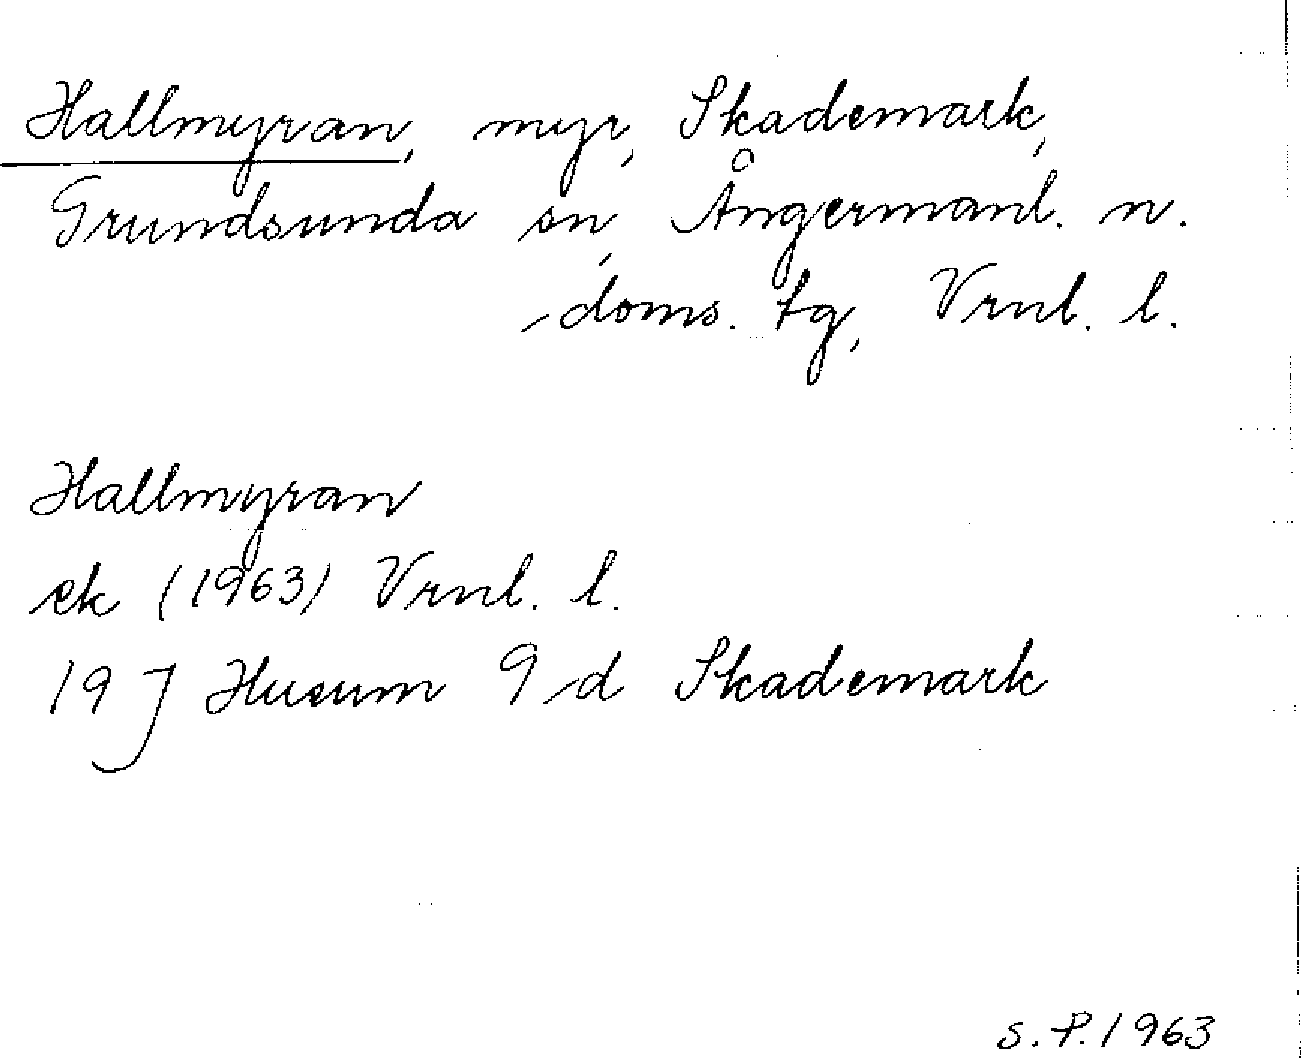 Hallmyran, myr, Skademark,
Grundsunda sn, Ångermanl. n.
doms. tg, Vrnl. l.
Hallmyran
ek (1963) Vrnl. l.
19 J Husum 9 d Skademark
S. P. 1963